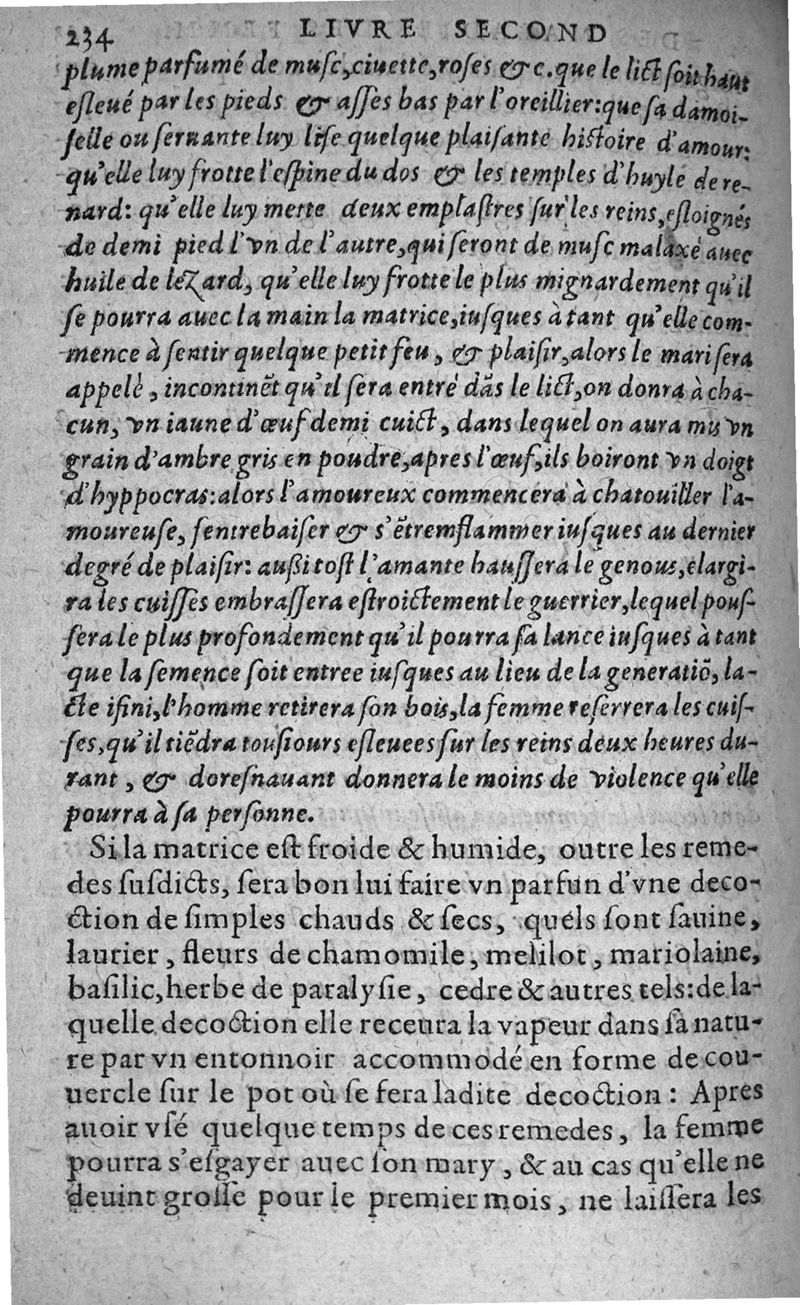 234 LIVRE SECOND
plume parfumé de musc, ciuette, roses & c. que le lict soit haut
esleué par les pieds & asses bas par l'oreillier: que sa damoi-
selle ou seruante luy lise quelque plaisante histoire d'amour:
qu'elle luy frotte l'espine du dos & les temples d'huyle de re-
nard: qu'elle luy mette deux emplastres sur les reins, esloignés
de demi pied l'vn de l'autre, qui seront de musc malaxé auec
huile de lezard, qu'elle luy frotte le plus mignardement qu'il
se pourra auec la main la matrice, iusques à tant qu'elle com-
mence à sentir quelque petit feu, & plaisir, alors le mari sera
appelè, incontinẽt qu'il sera entré dãs le lict, on donra à cha-
cun, vn iaune d'œuf demi cuict, dans lequel on aura mis vn
grain d'ambre gris en poudre, apres l'œuf, ils boiront vn doigt
d'hyppocras: alors l'amoureux commencera à chatouiller l'a-
moureuse, sentrebaiser & s'ẽtremflammer iusques au dernier
degré de plaisir: aussi tost l'amante haussera le genous, elargi-
ra les cuisses embrassera estroictement le guerrier, lequel pous-
sera le plus profondement qu'il pourra sa lance iusques à tant
que la semence soit entree iusques au lieu de la generatiõ, la-
cte ifini, l'homme retirera son bois, la femme reserrera les cuis-
ses, qu'il tiẽdra tousiours esleuees sur les reins deux heures du-
rant, & doresnauant donnera le moins de violence qu'elle
pourra à sa personne.
Si la matrice est froide & humide, outre les reme-
des susdicts, sera bon lui faire vn parfun d'vne deco-
ction de simples chauds & secs, quels sont sauine,
laurier, fleurs de chamomile, melilot, mariolaine,
basilic, herbe de paralysie, cedre & autres tels: de la-
quelle decoction elle receura la vapeur dans sa natu-
re par vn entonnoir accommodé en forme de cou-
uercle sur le pot où se fera ladite decoction: Apres
auoir vsé quelque temps de ces remedes, la femme
pourra s'esgayer auec son mary, & au cas qu'elle ne
deuint grosse pour le premier mois, ne laissera les